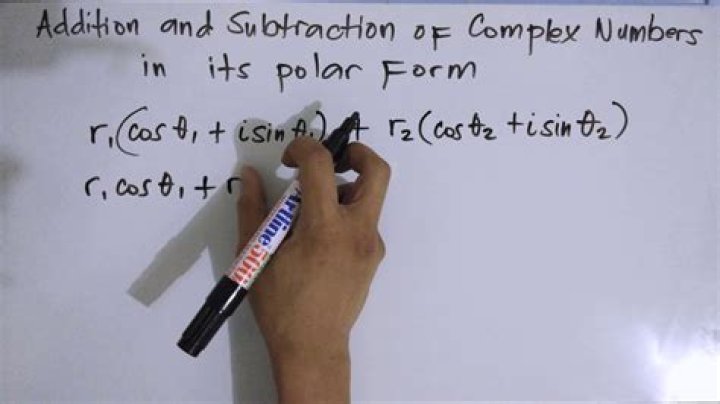 Addition and Subtraction of Complex Numbers
in its polar Form
r₁(cosθ₁ + isinθ₁) + r₂(cosθ₂ + isinθ₂)
r₁cosθ₁ + r
Artline 500A